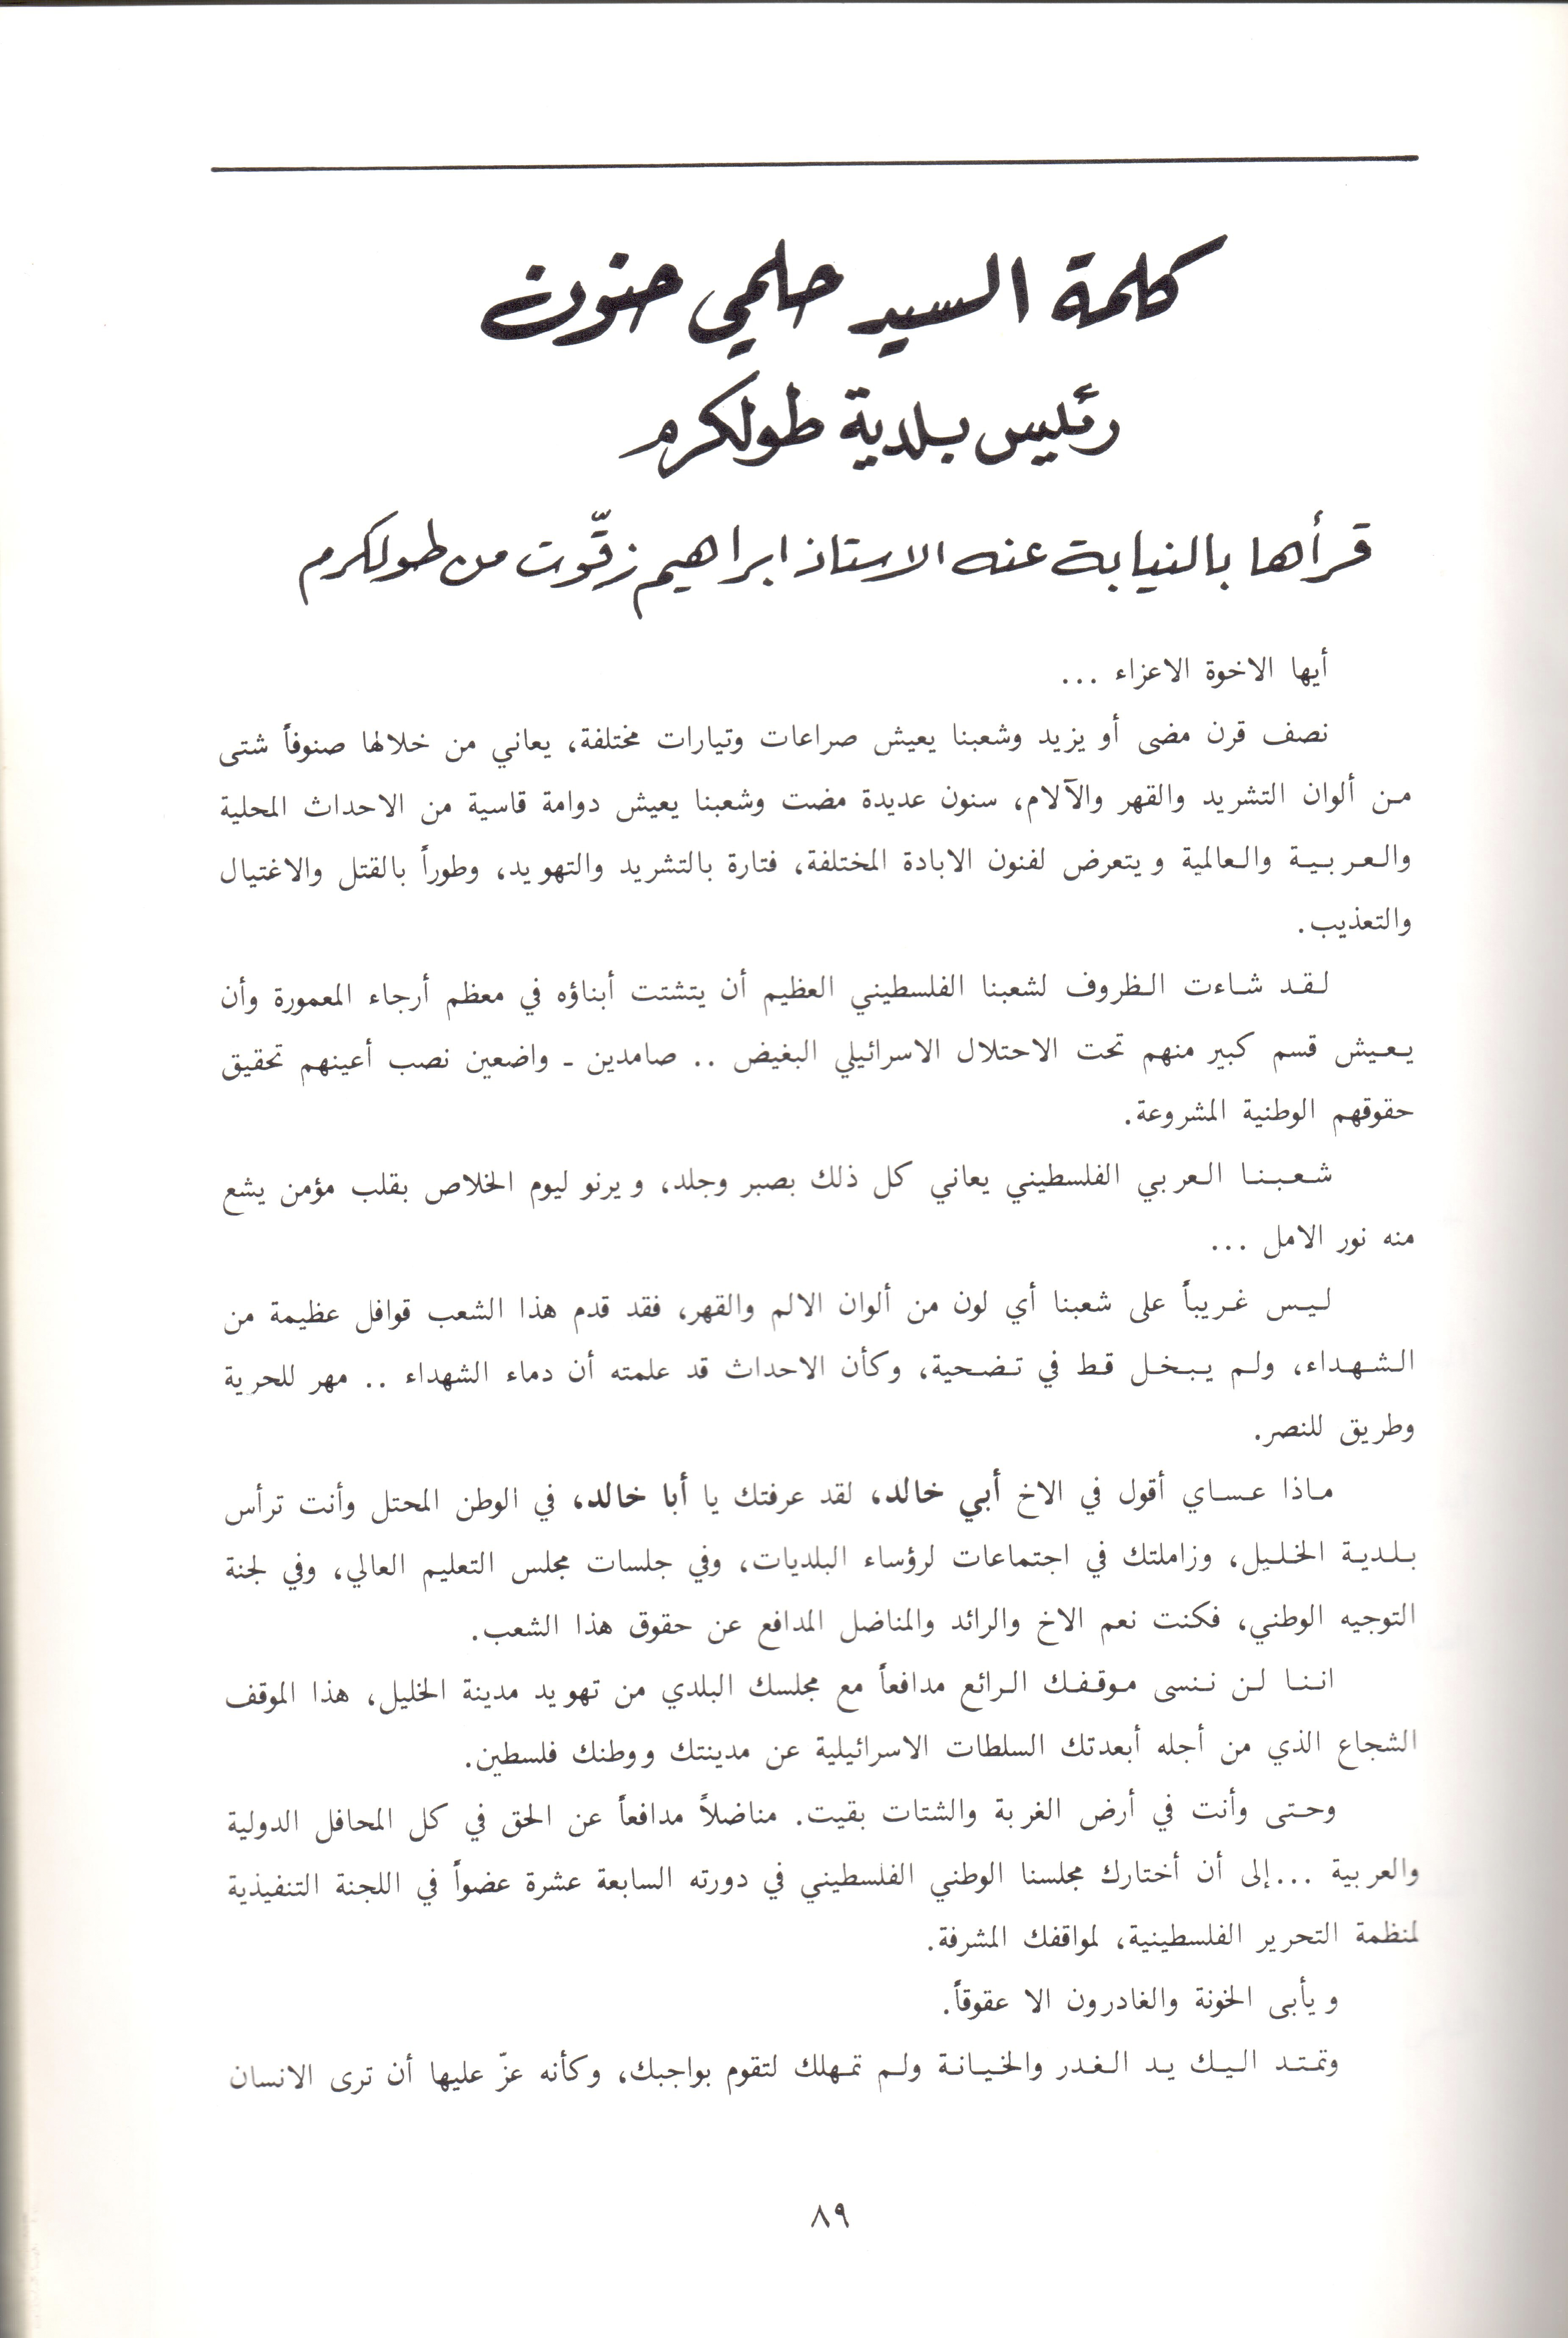 كلمة السيد حلمي حنون
رئيس بلدية طولكرم
قرأها بالنيابة عنه الاستاذ ابراهيم زقّوت من طولكرم
أيها الاخوة الاعزاء ...
نصف قرن مضى أو يزيد وشعبنا يعيش صراعات وتيارات مختلفة، يعاني من خلالها صنوفاً شتى
من ألوان التشريد والقهر والآلام، سنون عديدة مضت وشعبنا يعيش دوامة قاسية من الاحداث المحلية
والعربية والعالمية ويتعرض لفنون الابادة المختلفة، فتارة بالتشريد والتهويد، وطوراً بالقتل والاغتيال
والتعذيب.
لقد شاءت الظروف لشعبنا الفلسطيني العظيم أن يتشتت أبناؤه في معظم أرجاء المعمورة وأن
يعيش قسم كبير منهم تحت الاحتلال الاسرائيلي البغيض .. صامدين ـ واضعين نصب أعينهم تحقيق
حقوقهم الوطنية المشروعة.
شعبنا العربي الفلسطيني يعاني كل ذلك بصبر وجلد، ويرنو ليوم الخلاص بقلب مؤمن يشع
منه نور الامل ...
ليس غريباً على شعبنا أي لون من ألوان الالم والقهر، فقد قدم هذا الشعب قوافل عظيمة من
الشهداء، ولم يبخل قط في تضحية، وكأن الاحداث قد علمته أن دماء الشهداء .. مهر للحرية
وطريق للنصر.
ماذا عساي أقول في الاخ أبي خالد، لقد عرفتك يا أبا خالد، في الوطن المحتل وأنت ترأس
بلدية الخليل، وزاملتك في اجتماعات لرؤساء البلديات، وفي جلسات مجلس التعليم العالي، وفي لجنة
التوجيه الوطني، فكنت نعم الاخ والرائد والمناضل المدافع عن حقوق هذا الشعب.
اننا لن ننسى موقفك الرائع مدافعاً مع مجلسك البلدي من تهويد مدينة الخليل، هذا الموقف
الشجاع الذي من أجله أبعدتك السلطات الاسرائيلية عن مدينتك ووطنك فلسطين.
وحتى وأنت في أرض الغربة والشتات بقيت. مناضلاً مدافعاً عن الحق في كل المحافل الدولية
والعربية ...إلى أن أختارك مجلسنا الوطني الفلسطيني في دورته السابعة عشرة عضواً في اللجنة التنفيذية
لمنظمة التحرير الفلسطينية، لمواقفك المشرفة.
ويأبى الخونة والغادرون الا عقوقاً.
وتمتد اليك يد الغدر والخيانة ولم تمهلك لتقوم بواجبك، وكأنه عزّ عليها أن ترى الانسان
٨٩